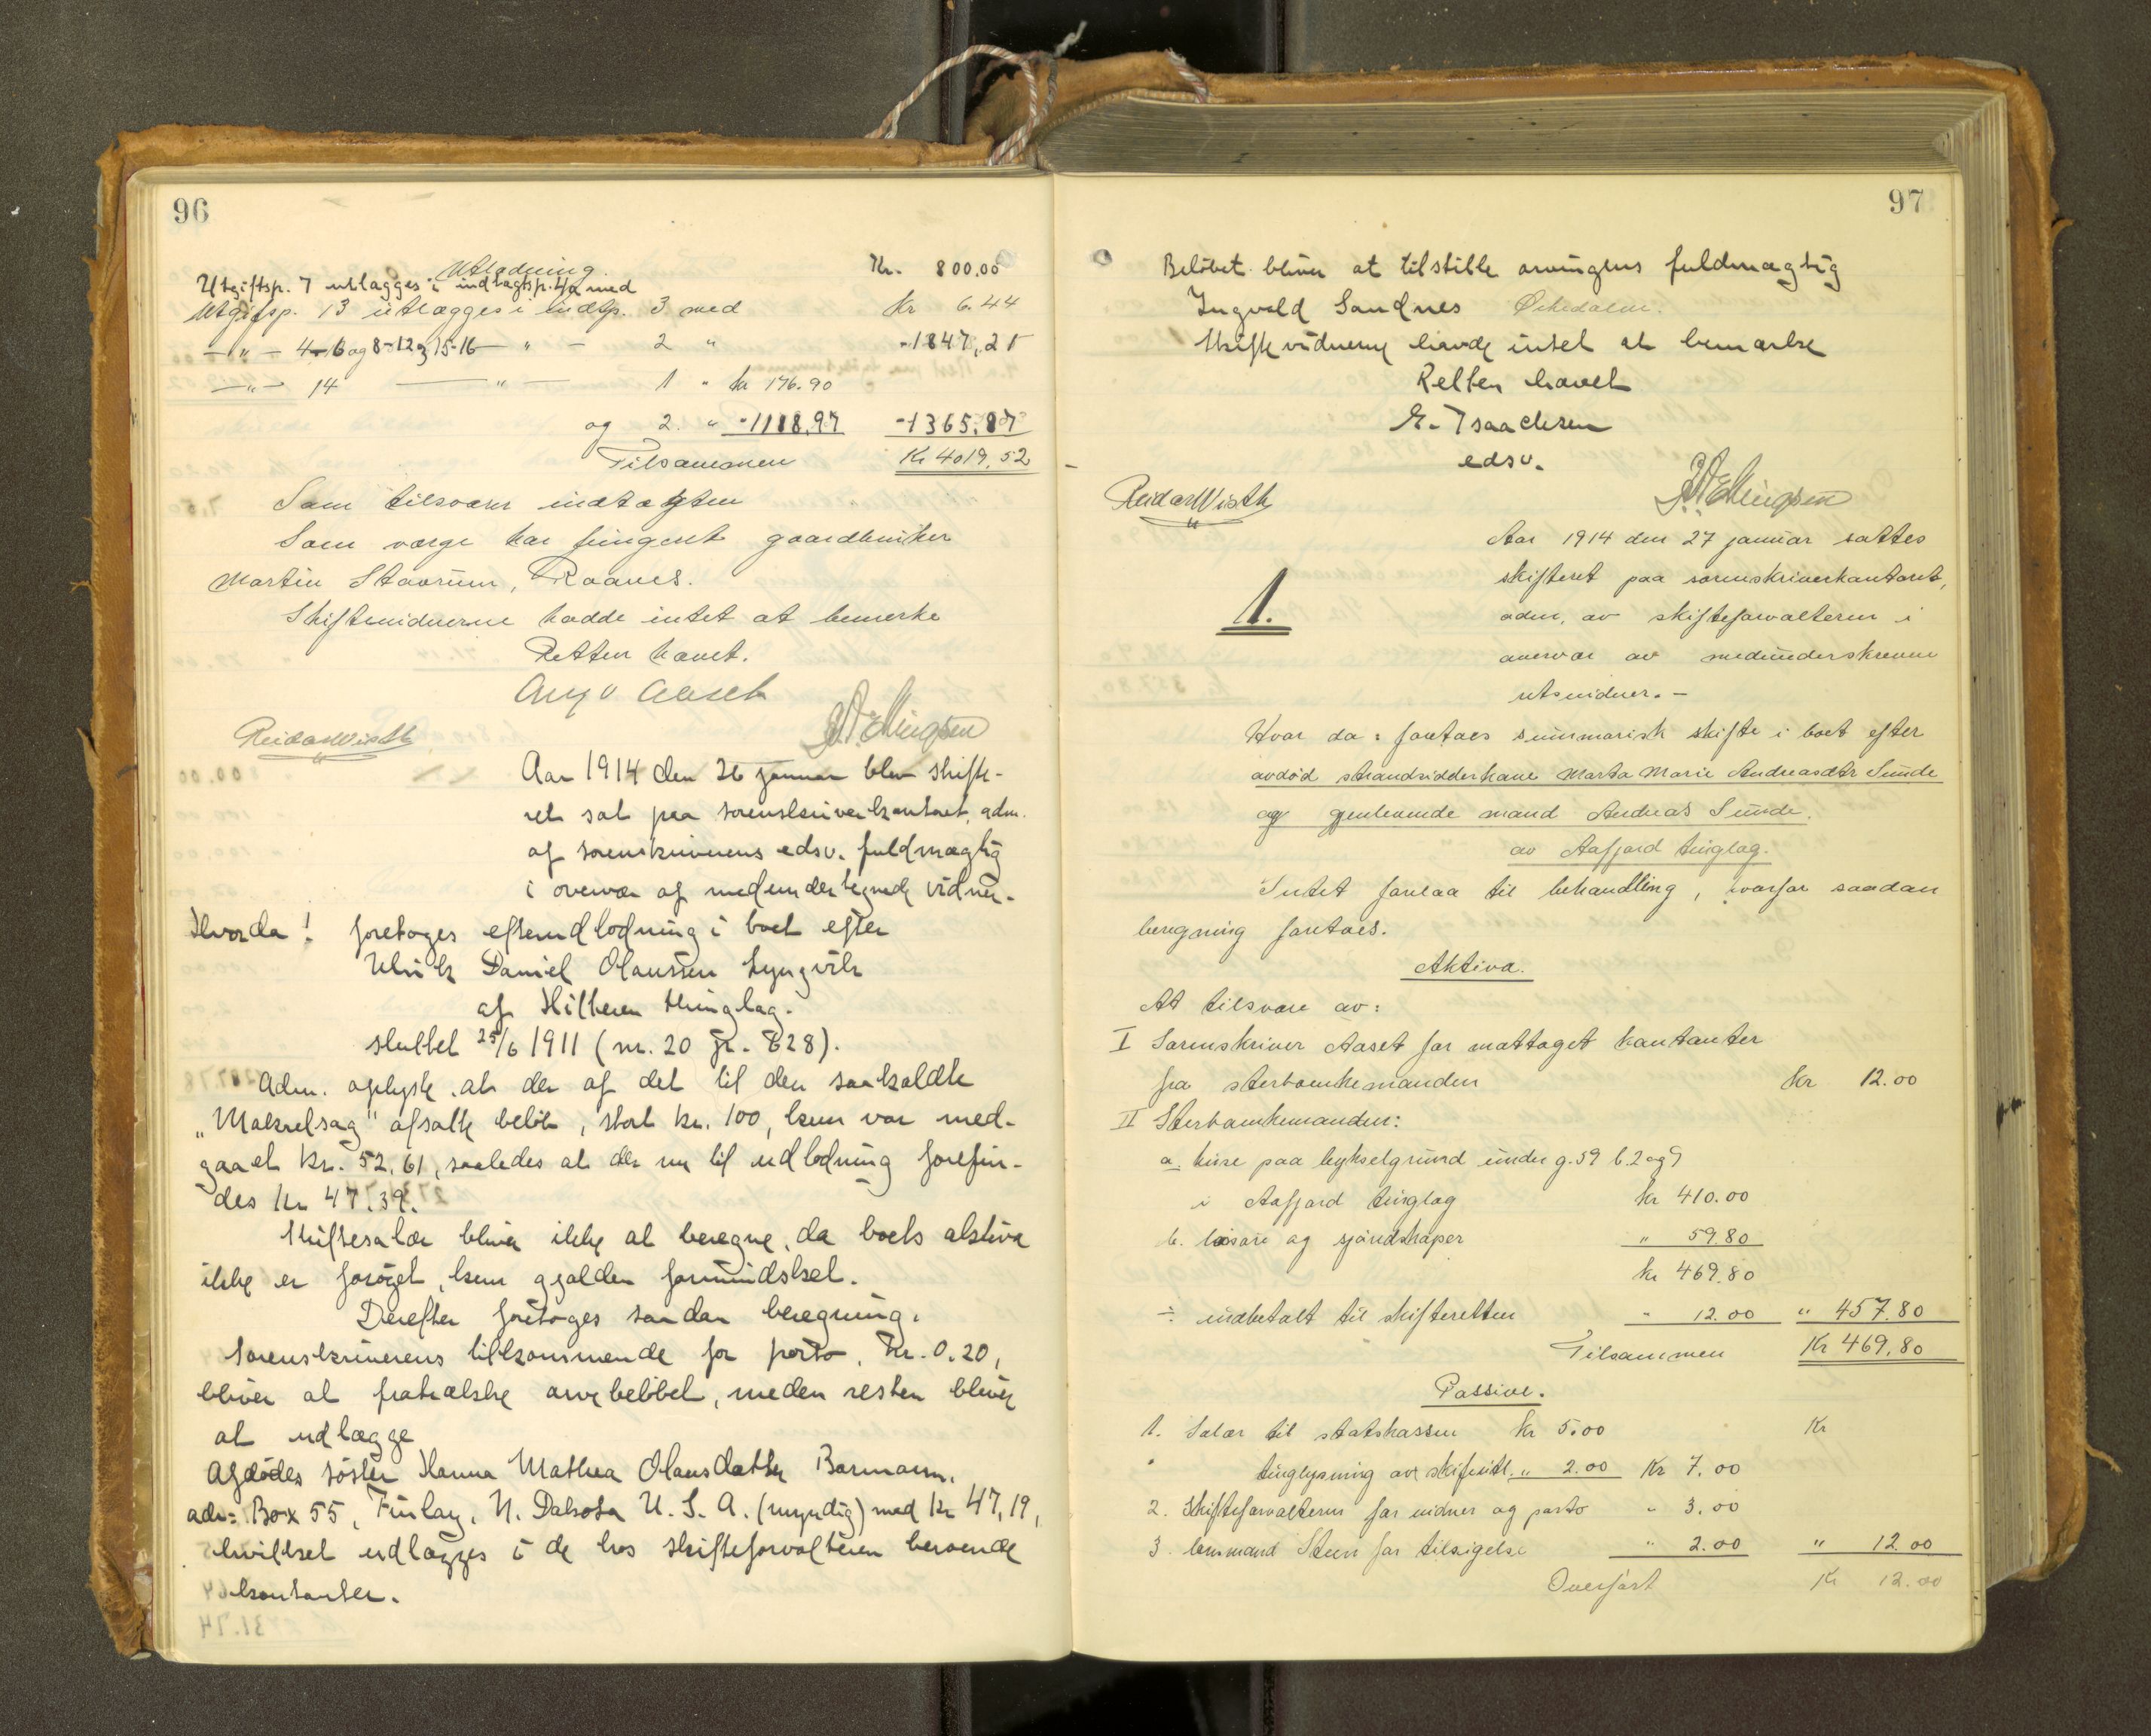 96
Utlodning.
Utgiftsp. 7 utlægges i indtægtsp. 4a med Kr. 800.00
Utgifsp. 13 utlægges i indtp. 3 med Kr 6.44
—"— 4-6 og 8-12 og 15-16 — " — 2 " -1847,21
—"— 14 — " — 1 " kr 176.90
og 2. " -1188.97 -1365.87
Tilsammen Kr 4019,52
Som tilsvarer indtægten
Som værge har fungert gaardbruker
Martin Stavrum, Raanes.
Skiftevidnerne hadde intet at bemerke
Retten hævet.
Aug v Aaset
Reidar Wisth
Aar 1914 den 26 januar blev skifte-
ret sat paa sorenskriverkontoret, adm.
af sorenskriverens edsv. fuldmægtig
i overvær af medundertegnede vidner.
Hvorda! foretoges efterudlodning i boet efter
Ulrik Daniel Olaussen Lyngvik
af Hitteren thinglag.
sluttet 25/6 1911 (nr. 20 pr. 828).
Adm. oplyste at der af det til den saakaldte
"Makrelsag" afsatte beløb, stort kr. 100, kun var med-
gaaet kr. 52,61, saaledes at der nu til udlodning forefin-
des kr 47.39.
Skiftesalær bliver ikke at beregne, da boets aktiva
ikke er forøget, kun gjælden formindsket.
Derefter foretoges saadan beregning.
Sorenskriverens tilkommende for porto, kr. 0.20,
bliver at fratrække arvebeløbet, meden resten bliver
at udlægge
Afdødes søster Hanna Mathea Olausdatter Barmann.
adr: Box 55, Finlay, N. Dakota U. S. A. (myndig) med kr 47,19,
hvilket udlægges i de hos skifteforvalteren beroende
kontanter.
97
Beløbet bliver at tilstille arvingens fuldmægtig
Ingvald Sandnes
Skiftevidnerne havde intet at bemærke
Retten hævet
E. Isaachsen
edsv.
Reidar Wisth
Aar 1914 den 27 januar sattes
skifteret paa sorenskriverkontoret,
adm. av skifteforvalteren i
overvær av medunderskrevne
retsvidner. —
1.
Hvor da: foretaes summarisk skifte i boet efter
avdød strandsidderkone Marta Marie Andreasdtr Sunde
og gjenlevende mand Andreas Sunde.
av Aafjord tinglag.
Intet forelaa til behandling, hvorfor saadan
beregning foretaes.
Aktiva.
At tilsvare av:
I Sorenskriver Aaset for mottaget kontanter
fra sterboenkemanden Kr 12.00
II Sterboenkemanden:
a. huse paa bykselgrund under g. 59 b. 2 og 9
i Aafjord tinglag kr 410.00
b. løsøre og sjøredskaper " 59.80
kr 469.80
÷ indbetalt til skifteretten " 12.00 " 457.80
Tilsammen Kr 469,80
Passiva.
1. Salær til statskassen kr 5.00 Kr
" tinglysning av skifeutl. " 2.00 Kr 7.00
2. Skifteforvalteren for vidner og porto " 3.00
3. lensmand Steen for tilsigelse " 2.00 " 12.00
Overført Kr 12.00